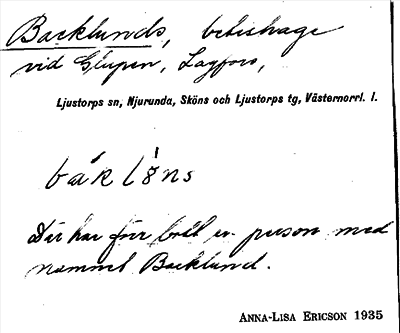 Backlunds, beteshage
vid Glupen, Lagfors,
Ljustorps sn, Njurunda, Sköns och Ljustorps tg, Västernorrl. l.
Där har förr bott en person med
namnet Backlund.
ANNA-LISA ERICSON 1935